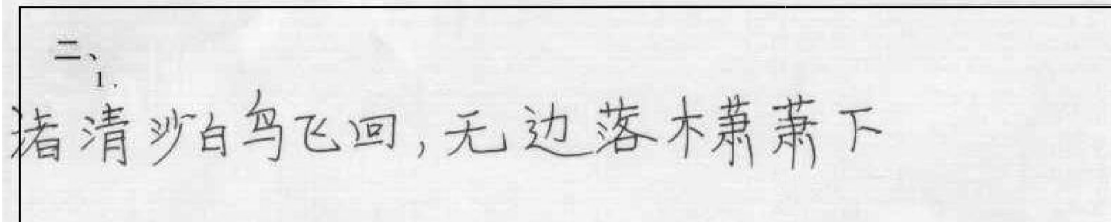 二、
1.
渚清沙白鸟飞回,无边落木萧萧下